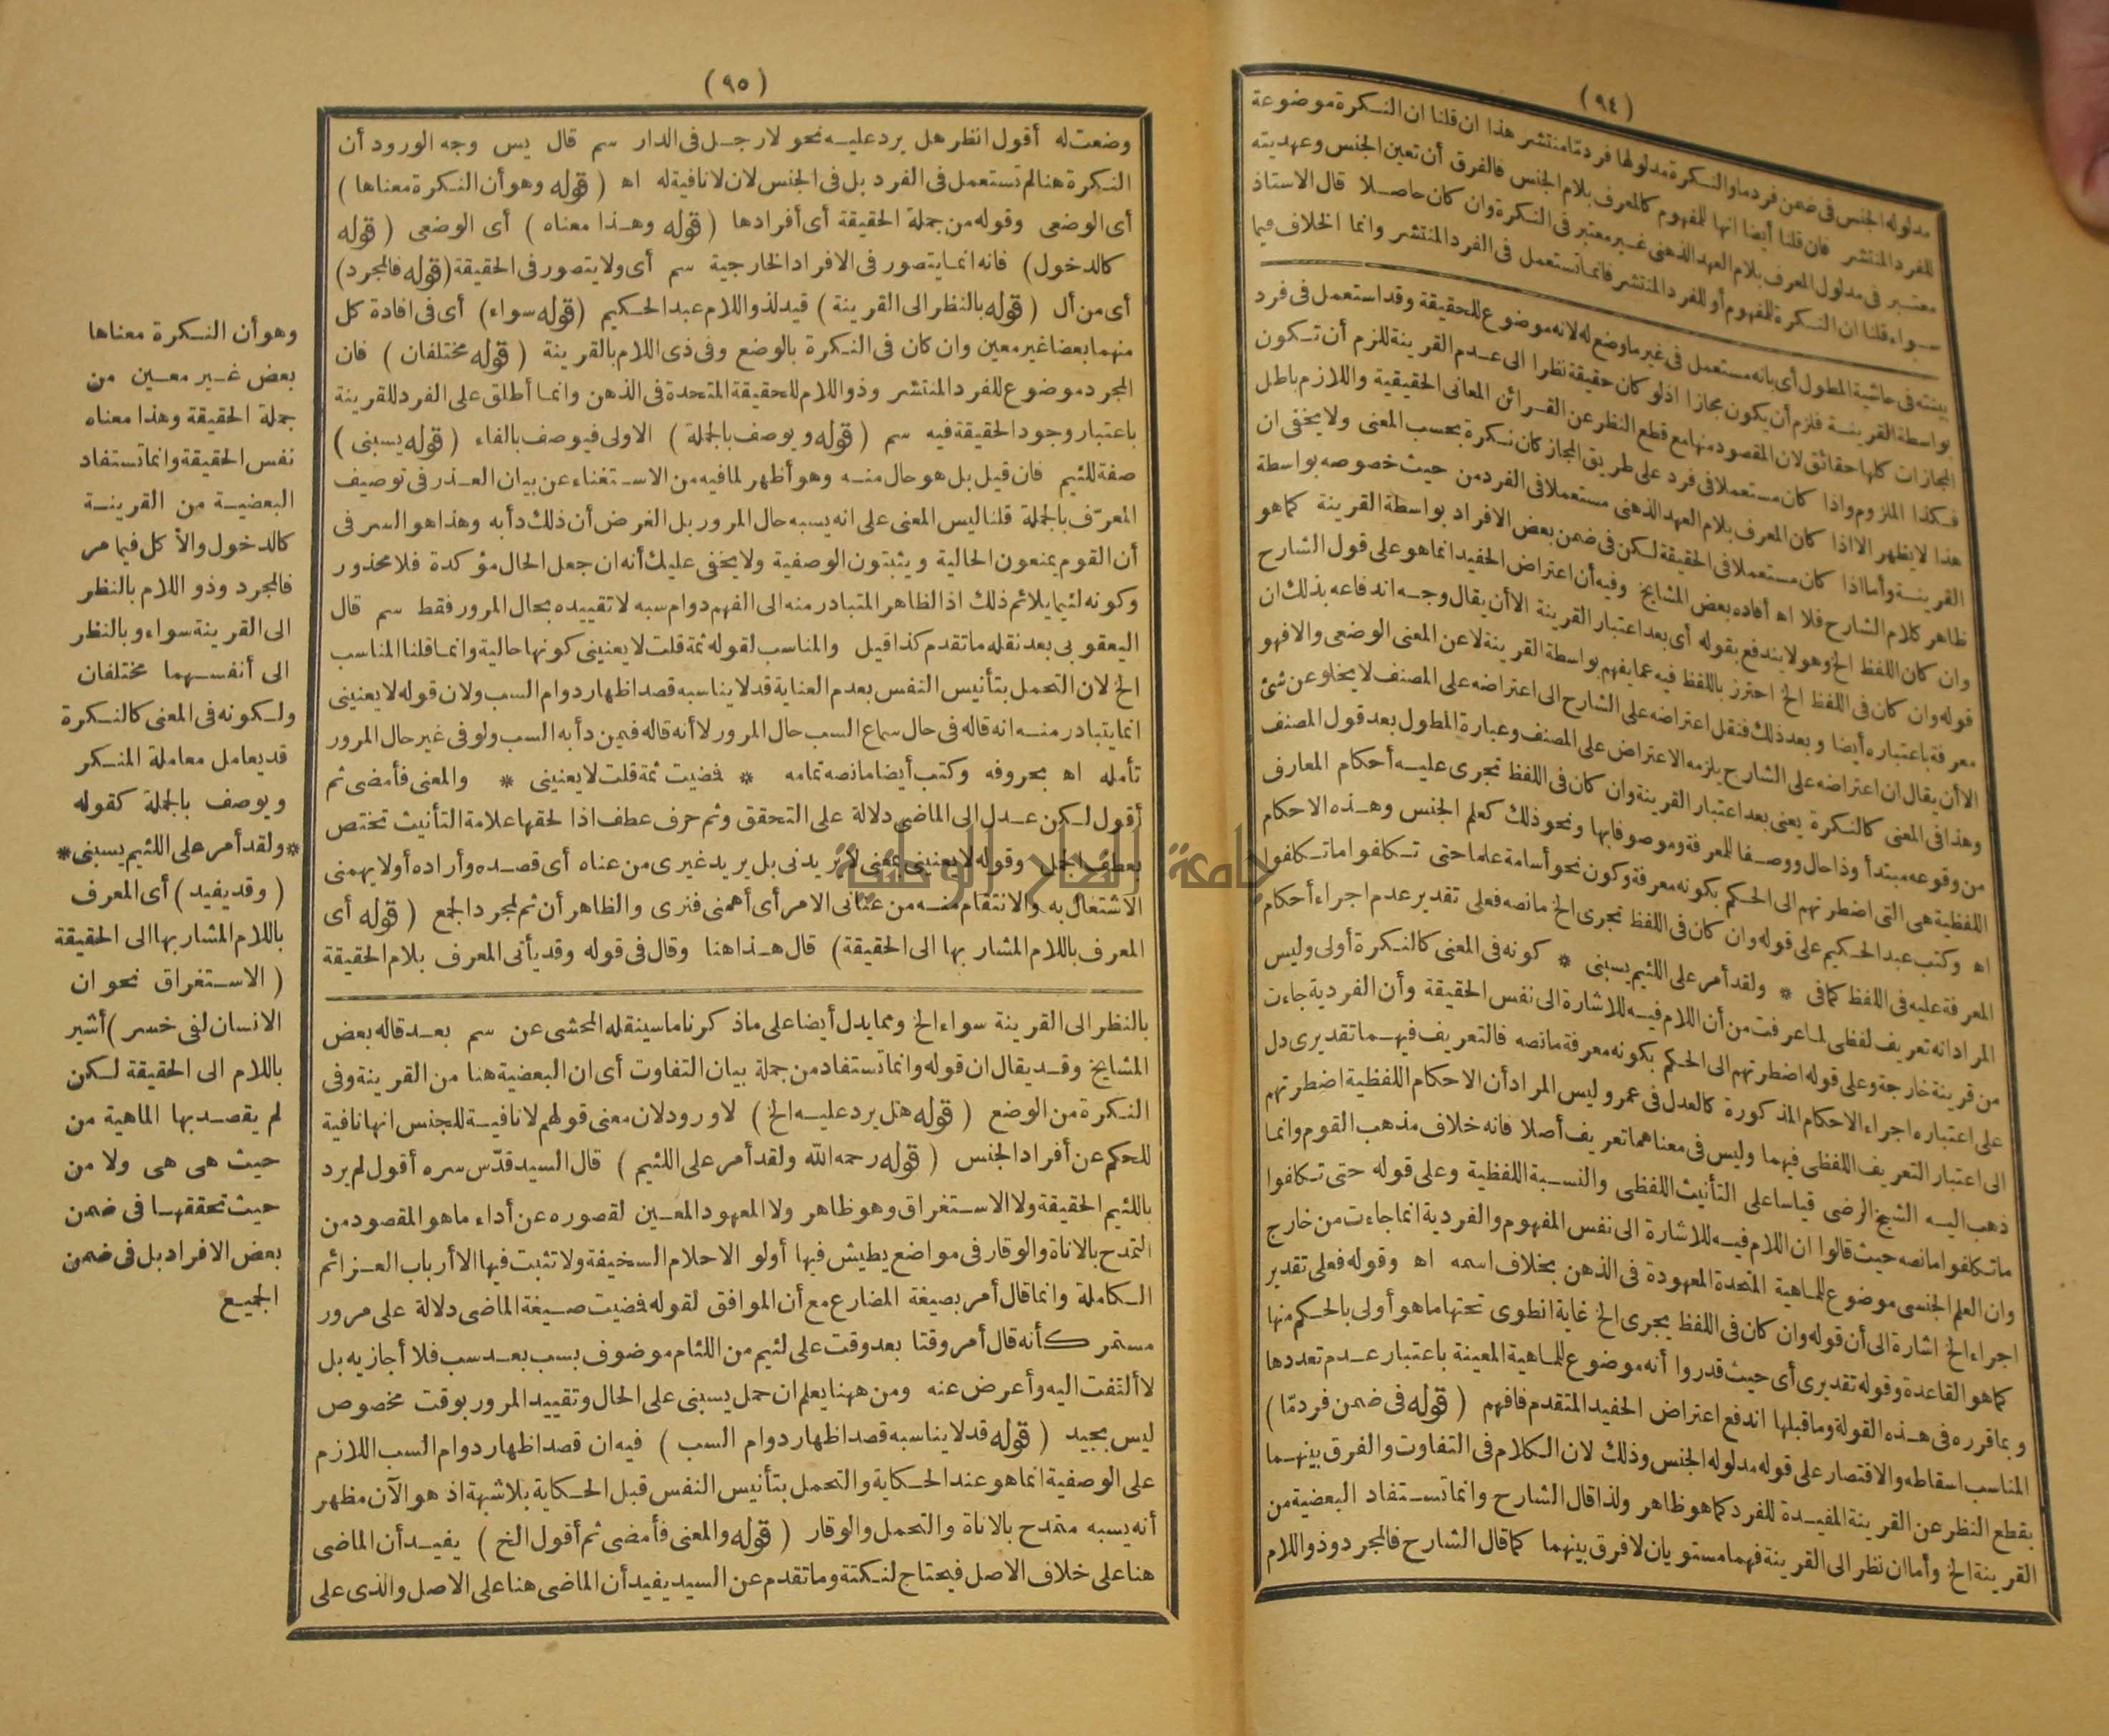 (٩٤)
مدلوله الجنس فى ضمن فرد ما والنكرة مدلولها فرد مّا منتشر هذا ان قلنا ان النكرة موضوعة
للفرد المنتشر فان قلنا أيضا انها للمفهوم كالمعرف بلام الجنس فالفرق أن تعين الجنس وعهديته
معتبر فى مدلول المعرف بلام العهد الذهنى غير معتبر فى النكرة وان كان حاصلا قال الاستاذ
سواء قلنا ان النكرة للمفهوم أو للفرد المنتشر فانما تستعمل فى الفرد المنتشر وانما الخلاف فيما
بينته فى حاشية المطول أى بانه مستعمل فى غير ما وضع له لانه موضوع للحقيقة وقد استعمل فى فرد
بواسطة القرينة فلزم أن يكون مجازا اذ لو كان حقيقة نظرا الى عدم القرينة للزم أن تكون
المجازات كلها حقائق لان المقصود منها مع قطع النظر عن القرائن المعانى الحقيقية واللازم باطل
فكذا الملزوم واذا كان مستعملا فى فرد على طريق المجاز كان نكرة بحسب المعنى ولا يخفى ان
هذا لا يظهر الا اذا كان المعرف بلام العهد الذهنى مستعملا فى الفرد من حيث خصوصه بواسطة
القرينة وأما اذا كان مستعملا فى الحقيقة لكن فى ضمن بعض الافراد بواسطة القرينة كما هو
ظاهر كلام الشارح فلا اه أفاده بعض المشايخ وفيه أن اعتراض الحفيد انما هو على قول الشارح
وان كان اللفظ الخ وهو لا يندفع بقوله أى بعد اعتبار القرينة الا أن يقال وجه اندفاعه بذلك ان
قوله وان كان فى اللفظ الخ احترز باللفظ فيه عما يفهم بواسطة القرينة لا عن المعنى الوضعى والا فهو
معرفة باعتباره أيضا وبعد ذلك فنقل اعتراضه على الشارح الى اعتراضه على المصنف لا يخلو عن شئ
الا أن يقال ان اعتراضه على الشارح يلزمه الاعتراض على المصنف وعبارة المطول بعد قول المصنف
وهذا فى المعنى كالنكرة يعنى بعد اعتبار القرينة وان كان فى اللفظ تجرى عليه أحكام المعارف
من وقوعه مبتدأ وذا حال ووصفا للمعرفة وموصوفا بها ونحو ذلك كعلم الجنس وهذه الاحكام
اللفظية هى التى اضطرتهم الى الحكم بكونه معرفة وكون نحو أسامة علما حتى تكلفوا ما تكلفوا
اه وكتب عبد الحكيم على قوله وان كان فى اللفظ تجرى الخ ما نصه فعلى تقدير عدم اجراء أحكام
المعرفة عليه فى اللفظ كما فى * ولقد أمر على اللئيم يسبنى * كونه فى المعنى كالنكرة أولى وليس
المراد انه تعريف لفظى لما عرفت من أن اللام فيه للاشارة الى نفس الحقيقة وأن الفردية جاءت
من قرينة خارجة وعلى قوله اضطرتهم الى الحكم بكونه معرفة ما نصه فالتعريف فيهما تقديرى دل
على اعتباره اجراء الاحكام المذكورة كالعدل فى عمر وليس المراد أن الاحكام اللفظية اضطرتهم
الى اعتبار التعريف اللفظى فيهما وليس فى معناهما تعريف أصلا فانه خلاف مذهب القوم وانما
ذهب اليه الشيخ الرضى قياسا على التأنيث اللفظى والنسبة اللفظية وعلى قوله حتى تكلفوا
ما تكلفوا ما نصه حيث قالوا ان اللام فيه للاشارة الى نفس المفهوم والفردية انما جاءت من خارج
وان العلم الجنسى موضوع للماهية المتحدة المعهودة فى الذهن بخلاف اسمه اه وقوله فعلى تقدير
اجراء الخ اشارة الى أن قوله وان كان فى اللفظ يجرى الخ غاية انطوى تحتها ما هو أولى بالحكم منها
كما هو القاعدة وقوله تقديرى أى حيث قدروا أنه موضوع للماهية المعينة باعتبار عدم تعددها
وبما قرره فى هذه القولة وما قبلها اندفع اعتراض الحفيد المتقدم فافهم (قوله فى ضمن فرد مّا)
المناسب اسقاطه والاقتصار على قوله مدلوله الجنس وذلك لان الكلام فى التفاوت والفرق بينهما
بقطع النظر عن القرينة المفيدة للفرد كما هو ظاهر ولذا قال الشارح وانما تستفاد البعضية من
القرينة الخ وأما ان نظر الى القرينة فهما مستويان لا فرق بينهما كما قال الشارح فالمجرد وذو اللام
(٩٥)
وضعت له أقول انظر هل يرد عليه نحو لا رجل فى الدار سم قال يس وجه الورود أن
النكرة هنا لم تستعمل فى الفرد بل فى الجنس لان لا نافية له اه (قوله وهو أن النكرة معناها)
أى الوضعى وقوله من جملة الحقيقة أى أفرادها (قوله وهذا معناه) أى الوضعى (قوله
كالدخول) فانه انما يتصور فى الافراد الخارجية سم أى ولا يتصور فى الحقيقة (قوله فالمجرد)
أى من أل (قوله بالنظر الى القرينة) قيد لذو اللام عبد الحكيم (قوله سواء) أى فى افادة كل
منهما بعضا غير معين وان كان فى النكرة بالوضع وفى ذى اللام بالقرينة (قوله مختلفان) فان
المجرد موضوع للفرد المنتشر وذو اللام للحقيقة المتحدة فى الذهن وانما أطلق على الفرد للقرينة
باعتبار وجود الحقيقة فيه سم (قوله ويوصف بالجملة) الاولى فيوصف بالفاء (قوله يسبنى)
صفة للئيم فان قيل بل هو حال منه وهو أظهر لما فيه من الاستغناء عن بيان العذر فى توصيف
المعرّف بالجملة قلنا ليس المعنى على انه يسبه حال المرور بل الغرض أن ذلك دأبه وهذا هو السر فى
أن القوم يمنعون الحالية ويثبتون الوصفية ولا يخفى عليك أنه ان جعل الحال مؤكدة فلا محذور
وكونه لئيما يلائم ذلك اذ الظاهر المتبادر منه الى الفهم دوام سبه لا تقييده بحال المرور فقط سم قال
اليعقوبى بعد نقله ما تقدم كذا قيل والمناسب لقوله ثمة قلت لا يعنينى كونها حالية وانما قلنا المناسب
الخ لان التحمل بتأنيس النفس بعدم العناية قد لا يناسبه قصد اظهار دوام السب ولان قوله لا يعنينى
انما يتبادر منه انه قاله فى حال سماع السب حال المرور لا أنه قاله فيمن دأبه السب ولو فى غير حال المرور
تأمله اه بحروفه وكتب أيضا ما نصه تمامه * فمضيت ثمة قلت لا يعنينى * والمعنى فأمضى ثم
أقول لكن عدل الى الماضى دلالة على التحقق وثم حرف عطف اذا لحقها علامة التأنيث تختص
بعطف الجمل وقوله لا يعنينى بمعنى لا يريدنى بل يريد غيرى من عناه أى قصده وأراده أو لا يهمنى
الاشتغال به والانتقام منه من عنانى الامر أى أهمنى فنرى والظاهر أن ثم لمجرد الجمع (قوله أى
المعرف باللام المشار بها الى الحقيقة) قال هذا هنا وقال فى قوله وقد يأتى المعرف بلام الحقيقة
بالنظر الى القرينة سواء الخ ومما يدل أيضا على ما ذكرنا ما سينقله المحشى عن سم بعد قاله بعض
المشايخ وقد يقال ان قوله وانما تستفاد من جملة بيان التفاوت أى ان البعضية هنا من القرينة وفى
النكرة من الوضع (قوله هل يرد عليه الخ) لا ورود لان معنى قولهم لا نافية للجنس انها نافية
للحكم عن أفراد الجنس (قوله رحمه الله ولقد أمر على اللئيم) قال السيد قدّس سره أقول لم يرد
باللئيم الحقيقة ولا الاستغراق وهو ظاهر ولا المعهود المعين لقصوره عن أداء ما هو المقصود من
التمدح بالاناة والوقار فى مواضع يطيش فيها أولو الاحلام السخيفة ولا تثبت فيها الا أرباب العزائم
الكاملة وانما قال أمر بصيغة المضارع مع أن الموافق لقوله فمضيت صيغة الماضى دلالة على مرور
مستمر كأنه قال أمر وقتا بعد وقت على لئيم من اللئام موضوف بسب بعد سب فلا أجازيه بل
لا ألتفت اليه وأعرض عنه ومن ههنا يعلم ان حمل يسبنى على الحال وتقييد المرور بوقت مخصوص
ليس بجيد (قوله قد لا يناسبه قصد اظهار دوام السب) فيه ان قصد اظهار دوام السب اللازم
على الوصفية انما هو عند الحكاية والتحمل بتأنيس النفس قبل الحكاية بلا شبهة اذ هو الآن مظهر
أنه يسبه متمدح بالاناة والتحمل والوقار (قوله والمعنى فأمضى ثم أقول الخ) يفيد أن الماضى
هنا على خلاف الاصل فيحتاج لنكتة وما تقدم عن السيد يفيد أن الماضى هنا على الاصل والذى على
وهو أن النكرة معناها
بعض غير معين من
جملة الحقيقة وهذا معناه
نفس الحقيقة وانما تستفاد
البعضية من القرينة
كالدخول والأكل فيما مر
فالمجرد وذو اللام بالنظر
الى القرينة سواء وبالنظر
الى أنفسهما مختلفان
ولكونه فى المعنى كالنكرة
قد يعامل معاملة المنكر
ويوصف بالجملة كقوله
*ولقد أمر على اللئيم يسبنى*
(وقد يفيد) أى المعرف
باللام المشار بها الى الحقيقة
(الاستغراق نحو ان
الانسان لفى خسر) أشير
باللام الى الحقيقة لكن
لم يقصد بها الماهية من
حيث هى هى ولا من
حيث تحققها فى ضمن
بعض الافراد بل فى ضمن
الجميع
جامعة النجاح الوطنية